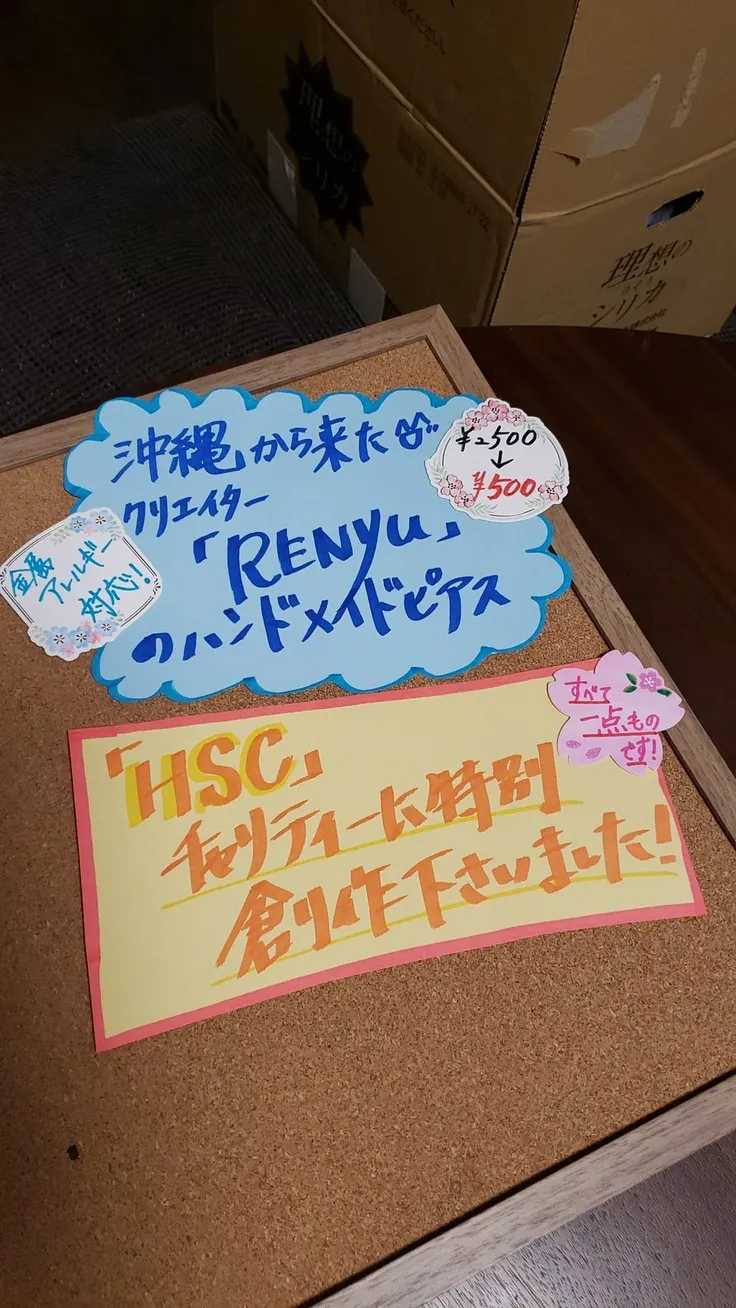 理想の
シリカ
理想の
シリカ
沖縄から来た
クリエイター
「RENYU」
のハンドメイドピアス
¥2500
↓
¥500
金属
アレルギー
対応!
「HSC」
チャリティーに特別
創作下さいました!
すべて
一点もの
です!